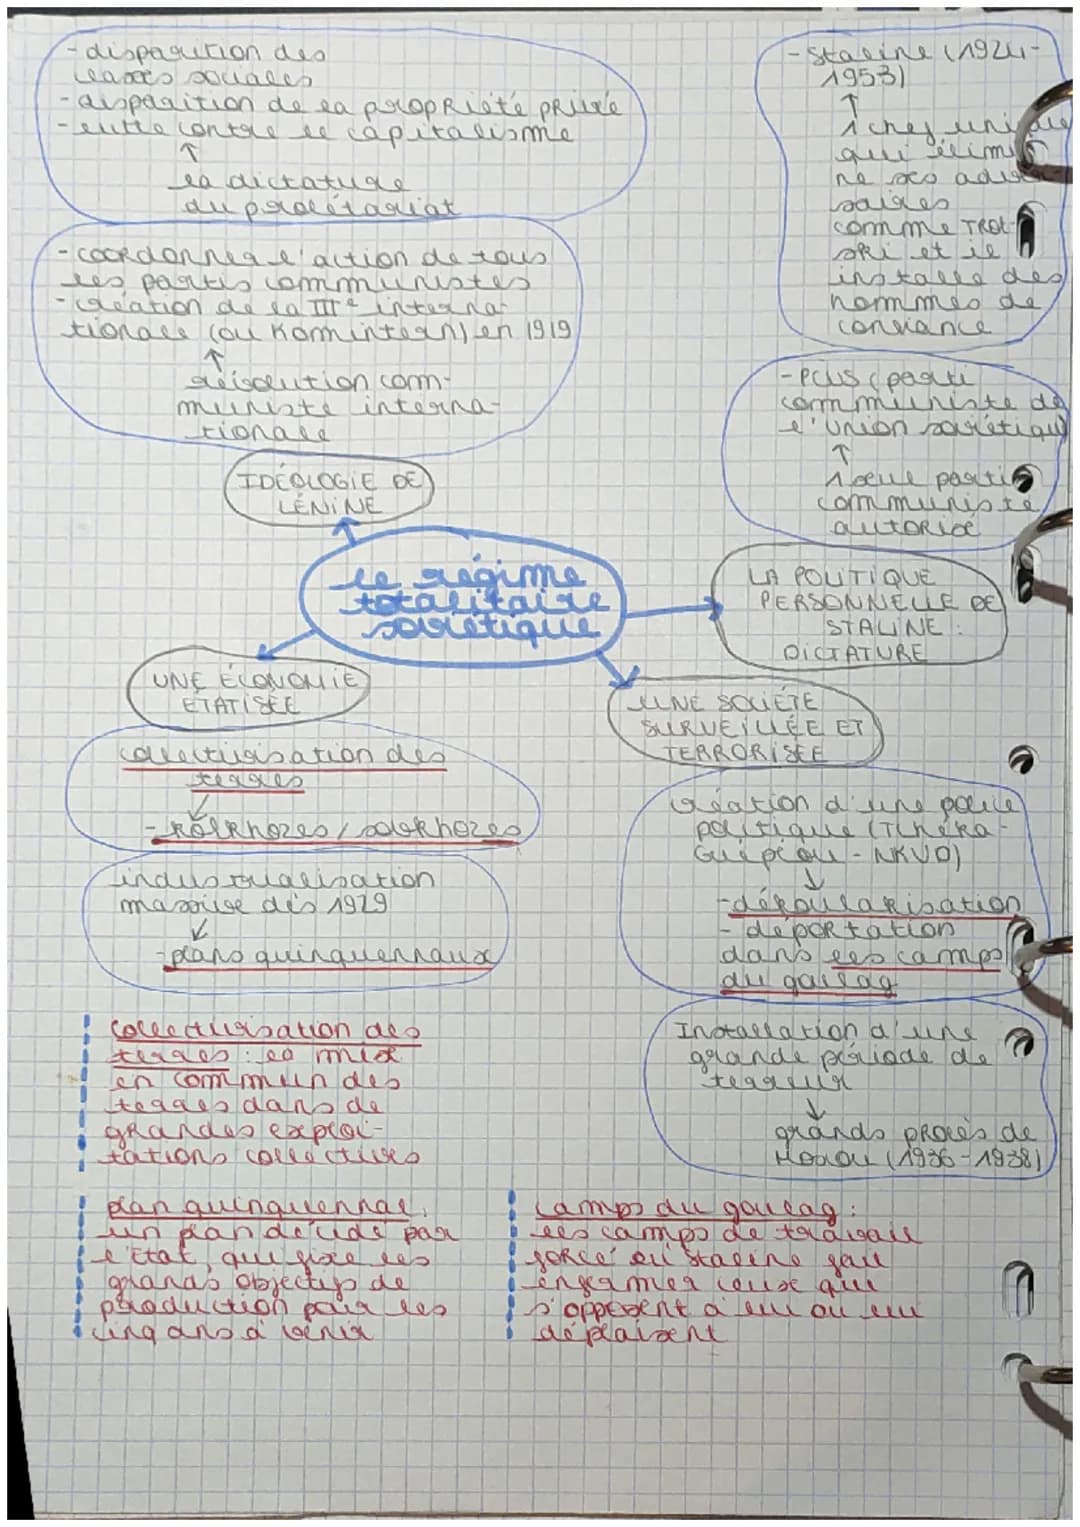 - disparition des
classes sociales
- disparition de la propriété privée
- lutte contre le capitalisme
↑
la dictature
du prolétariat
- coordonner l'action de tous
les partis communistes
- création de la IIIe interna-
tionale (ou Komintern) en 1919
↑
révolution com-
muniste interna-
tionale
IDÉOLOGIE DE
LÉNINE
- Staline (1924-
1953)
↑
1 chef unique
qui élimi-
ne ses adver
saires
comme TROT-
SKI et il
installe des
hommes de
confiance
- PCUS (parti
communiste de
l'union soviétique
↑
1 seul parti
communiste
autorisé
le régime
totalitaire
soviétique
LA POLITIQUE
PERSONNELLE DE
STALINE :
DICTATURE
UNE ÉCONOMIE
ÉTATISÉE
collectivisation des
terres
↓
- kolkhozes / sovkhozes
industrialisation
massive dès 1929
↓
- plans quinquennaux
UNE SOCIÉTÉ
SURVEILLÉE ET
TERRORISÉE
création d'une police
politique (Tchéka -
Guépéou - NKVD)
↓
- dékoulakisation
- déportation
dans les camps
du goulag
Installation d'une
grande période de
terreur
↓
grands procès de
Moscou (1936-1938)
collectivisation des
terres : la mise
en commun des
terres dans de
grandes exploi-
tations collectives
plan quinquennal :
un plan décidé par
l'État, qui fixe les
grands objectifs de
production pour les
cinq ans à venir
camps du goulag :
les camps de travail
forcé où Staline fait
enfermer ceux qui
s'opposent à lui ou lui
déplaisent